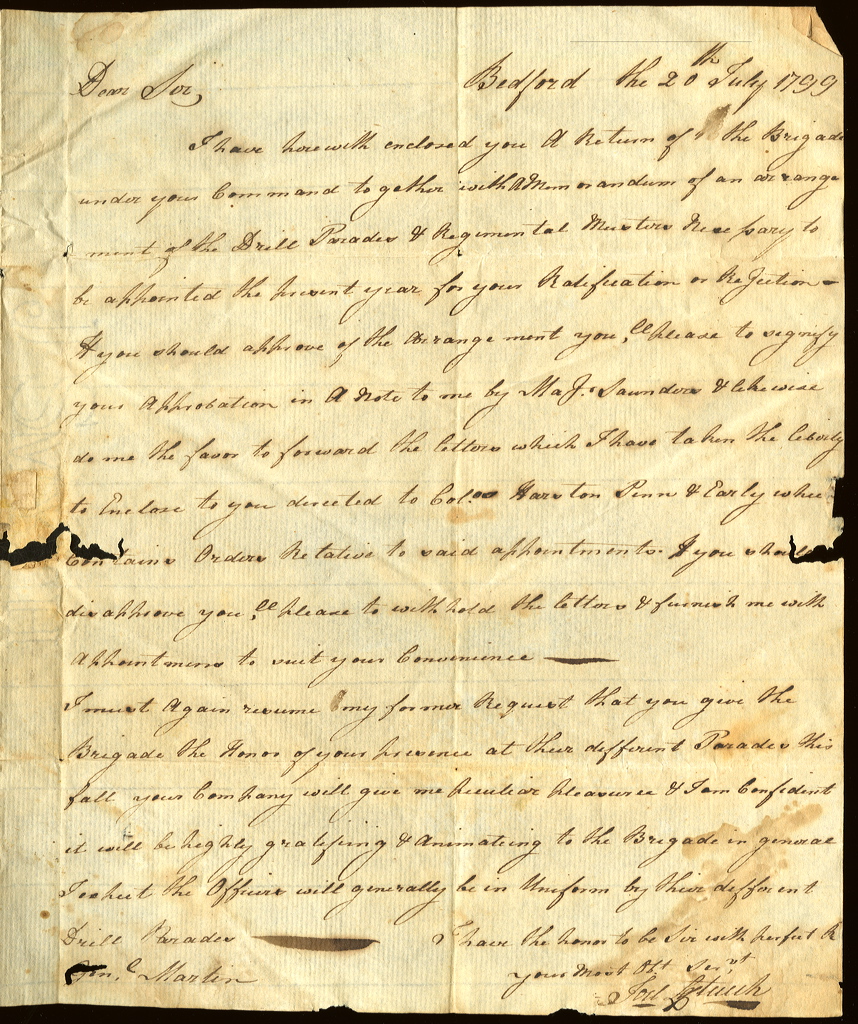 Dear Sir, Bedford the 20th July 1799
I have herewith enclosed you A Return of the Brigade
under your Command together with A Memorandum of an arrange
ment of the Drill Parades & Regimental Musters Necessary to
be appointed the present year for your Ratification or Rejection -
If you should approve of the Arrangement you,ll please to signify
your Approbation in A Note to me by Maj. Saunders & likewise
do me the favor to forward the letters which I have taken the liberty
to Enclose to you directed to Col.os Harston Penn & Early which
Contains Orders Relative to said appointments. If you should
disapprove you,ll please to withhold the letters & furnish me with
Appointmens to suit your Convenience
I must Again resume my former Request that you give the
Brigade the Honor of your presence at their different Parades this
fall your Company will give me peculiar pleasure & I am Confident
it will be highly gratifying & Animateing to the Brigade in general
I expect the Officers will generally be in Uniform by their different
Drill Parades I have the honor to be Sir with perfect R
Gen.l Martin your Most Obt Serv,t
Joel Leftwich